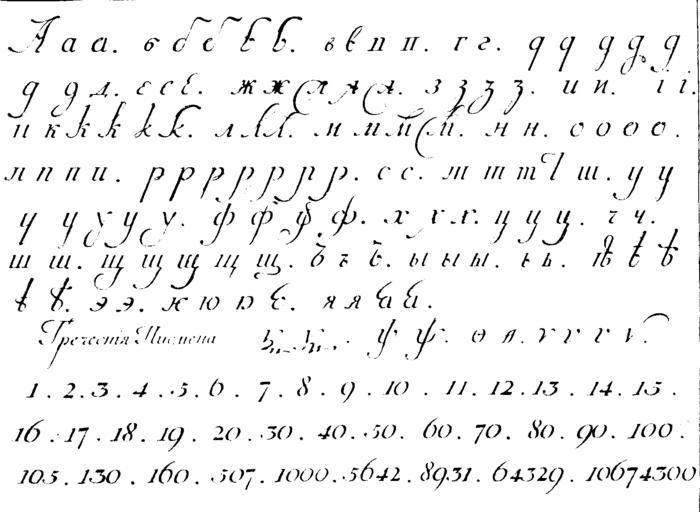 А а а. б б б б б. в в п п. г г. д д д д д
д д д. е е е. ж ж ж ж ж. з з з з. и и. і і.
и к к к к к. л л л. м м м м. н н. о о о о.
п п п п. р р р р р р р. с с. т т т т ш. у у
у у у у у. ф ф ф ф. х х х. ц ц ц. ч ч.
ш ш. щ щ щ щ щ. ъ ъ ъ. ы ы ы. ь ь. ѣ ѣ ѣ
ѣ ѣ. э э. ю ю ю ю. я я я я.
Греческія Писмена ѯ. ѯ. ѱ ѱ. ѳ ѳ. ѵ ѵ ѵ ѵ.
1 . 2 . 3 . 4 . 5 . 6 . 7 . 8 . 9 . 10 . 11 . 12 . 13 . 14 . 15 .
16 . 17 . 18 . 19 . 20 . 30 . 40 . 50 . 60 . 70 . 80 . 90 . 100 .
105 . 130 . 160 . 507 . 1000 . 5642 . 8931 . 64329 . 10674300